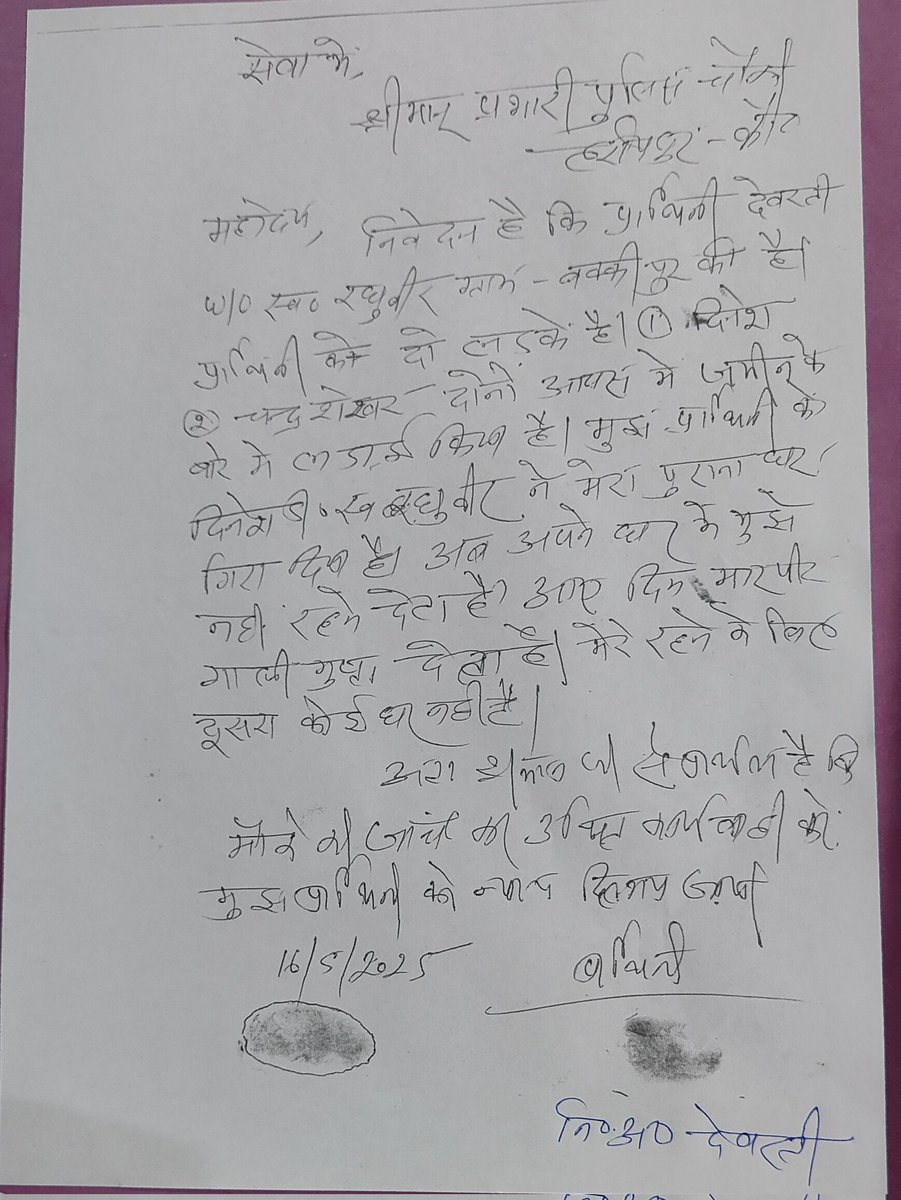 सेवा में,
श्रीमान् प्रभारी पुलिस चौकी
हरीपुर - कोट
महोदय, निवेदन है कि प्रार्थिनी देवरती
w/o स्व० रघुवीर ग्राम - बक्कीपुर की है।
प्रार्थिनी को दो लड़के है। ① दिनेश
② चन्द्रशेखर दोनों आपस मे जमीन के
बारे मे लडाई किया है। मुझ प्रार्थिनी के
दिनेश स्व० रघुवीर ने मेरा पुराना घर
गिरा दिया है। अब अपने घर मे मुझे
नही रहने देता है। आए दिन मारपीट
गाली गुप्ता देता है। मेरे रहने के लिए
दूसरा कोई घर नही है।
अतः श्रीमान जी से प्रार्थना है कि
मौके की जांच कर उचित कार्यवाही करें
मुझ प्रार्थिनी को न्याय दिलाया जाय
16/5/2025 प्रार्थिनी
नि०अ० देवरती